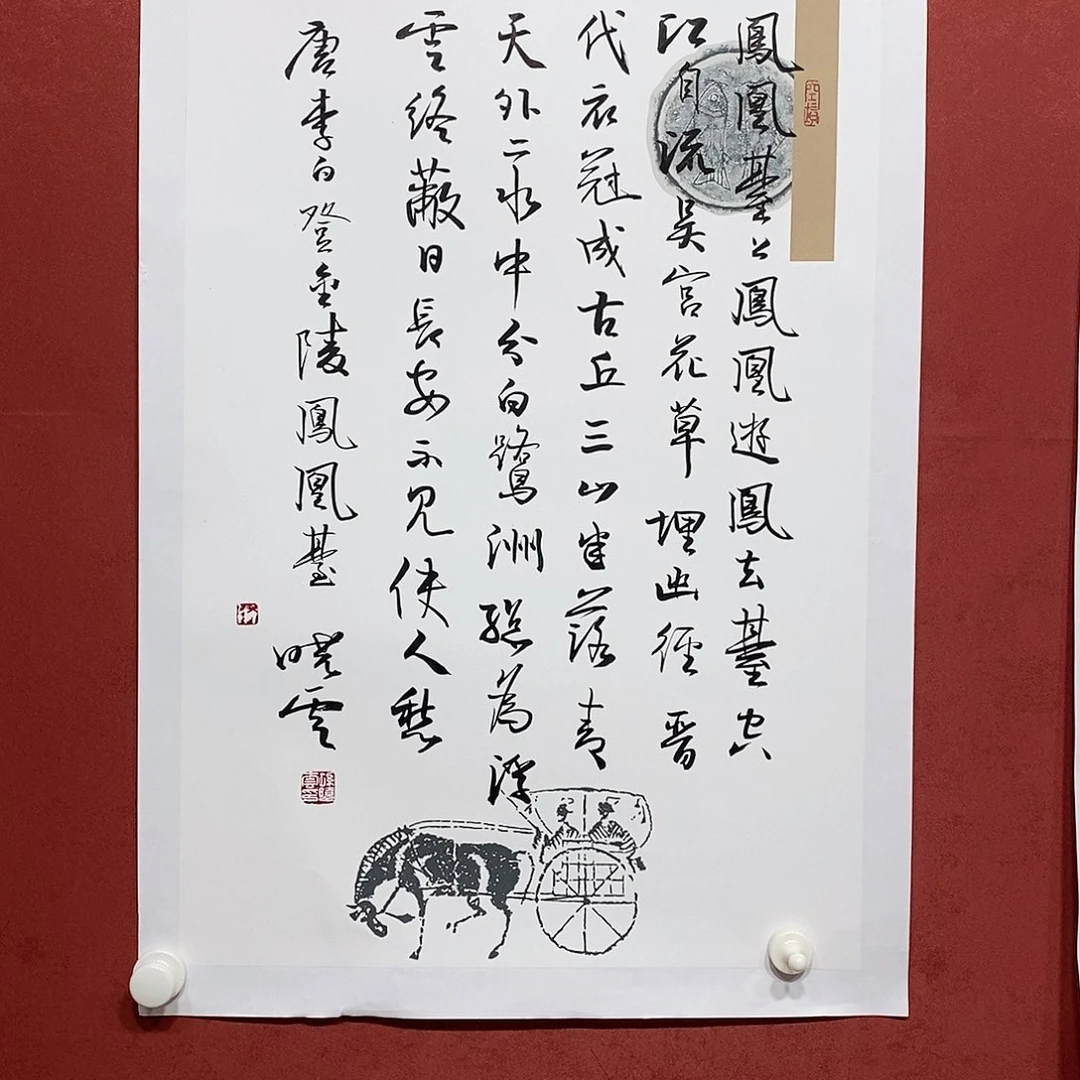 鳳凰臺上鳳凰遊鳳去臺空
江自流吳宮花草埋幽徑晉
代衣冠成古丘三山半落青
天外二水中分白鷺洲總為浮
雲終蔽日長安不見使人愁
唐李白登金陵鳳凰臺
曉雲